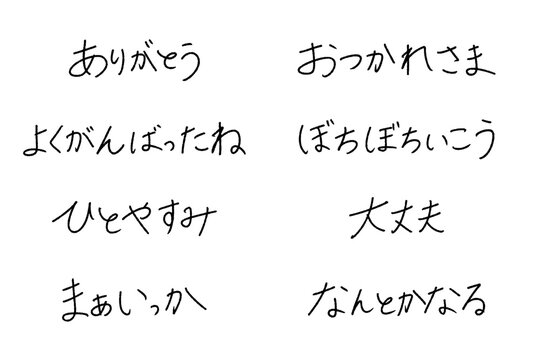 ありがとう
おつかれさま
よくがんばったね
ぼちぼちいこう
ひとやすみ
大丈夫
まぁいっか
なんとかなる